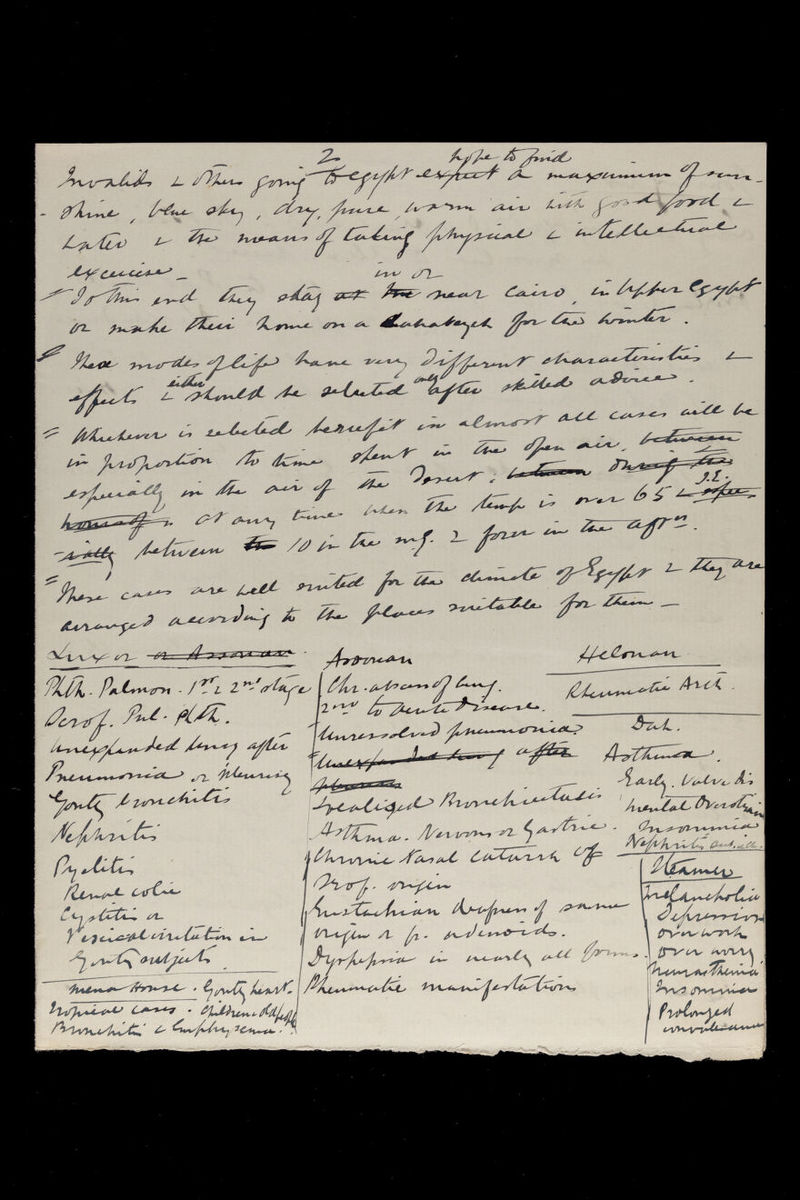 2
hope to find
Invalids & others going to Egypt expect a maximum of sun-
shine, blue sky, dry, pure, warm air with good food &
water & the means of taking physical & intellectual
excercise –
in or
To this end they stay at the near Cairo, in Upper Egypt
or make their home on a Dahabeyeh for the winter.
These modes of life have very different characteristics &
either only
effects & should be selected after skilled advice.
Whichever is selected benefit in almost all cases will be
in proportion to time spent in the open air, between
especially in the air of the Desert, between during the
I.E.
hours of at any time when the temp is over 65 & espec-
-ially between the 10 in the mg. & four in the aftn.
These cases are well suited for the climate of Egypt & they are
arranged according to the places suitable for them –
Luxor or Assouan
Phth. Pulmon. 1st & 2nd stage
Scrof. Pul. Phth.
Unexpanded lung after
Pneumonia or Pleurisy
Gouty bronchitis
Nephritis
Pyelitis
Renal colic
Cystitis or
Vesical irritation in
Gouty subjects
Mena House. Gouty heart.
Tropical cases. Children & old people
Bronchitis & Emphysema.
Assouan
Chr. absces of lung.
2ary to acute disease.
Unresolved pneumonia
Unexpanded lung after
Pleurisy
Localised Bronchiectasis
Asthma. Nervous or Gastric.
Chronic Nasal catarrh of
Scrof. origin
Eustachian deafness of same
origin or fr. adenoids.
Dyspepsia in nearly all forms.
Rheumatic manifestations
Helouan
Rheumatic Arth.
Dah.
Asthma.
Early. Valve dis
Mental Overstrain
Insomnia
Nephritis
Steamer
Melancholia
Depression
over work
over worry
Neurasthenia
Insomnia
Prolonged
convalescence